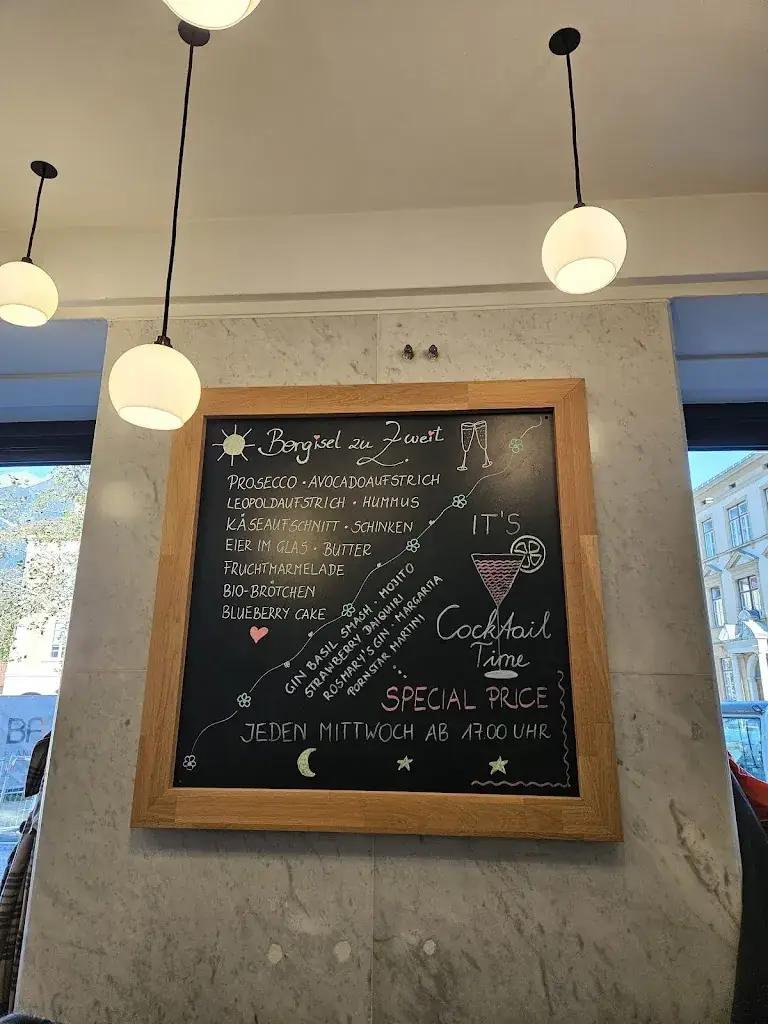 Bergisel zu Zweit
PROSECCO · AVOCADOAUFSTRICH
LEOPOLDAUFSTRICH · HUMMUS
KÄSEAUFSCHNITT · SCHINKEN
EIER IM GLAS · BUTTER
FRUCHTMARMELADE
BIO-BRÖTCHEN
BLUEBERRY CAKE
IT'S
Cocktail
Time
GIN BASIL SMASH · MOJITO
STRAWBERRY DAIQUIRI
ROSMARY'S GIN · MARGARITA
PORNSTAR MARTINI ...
SPECIAL PRICE
JEDEN MITTWOCH AB 17.00 UHR